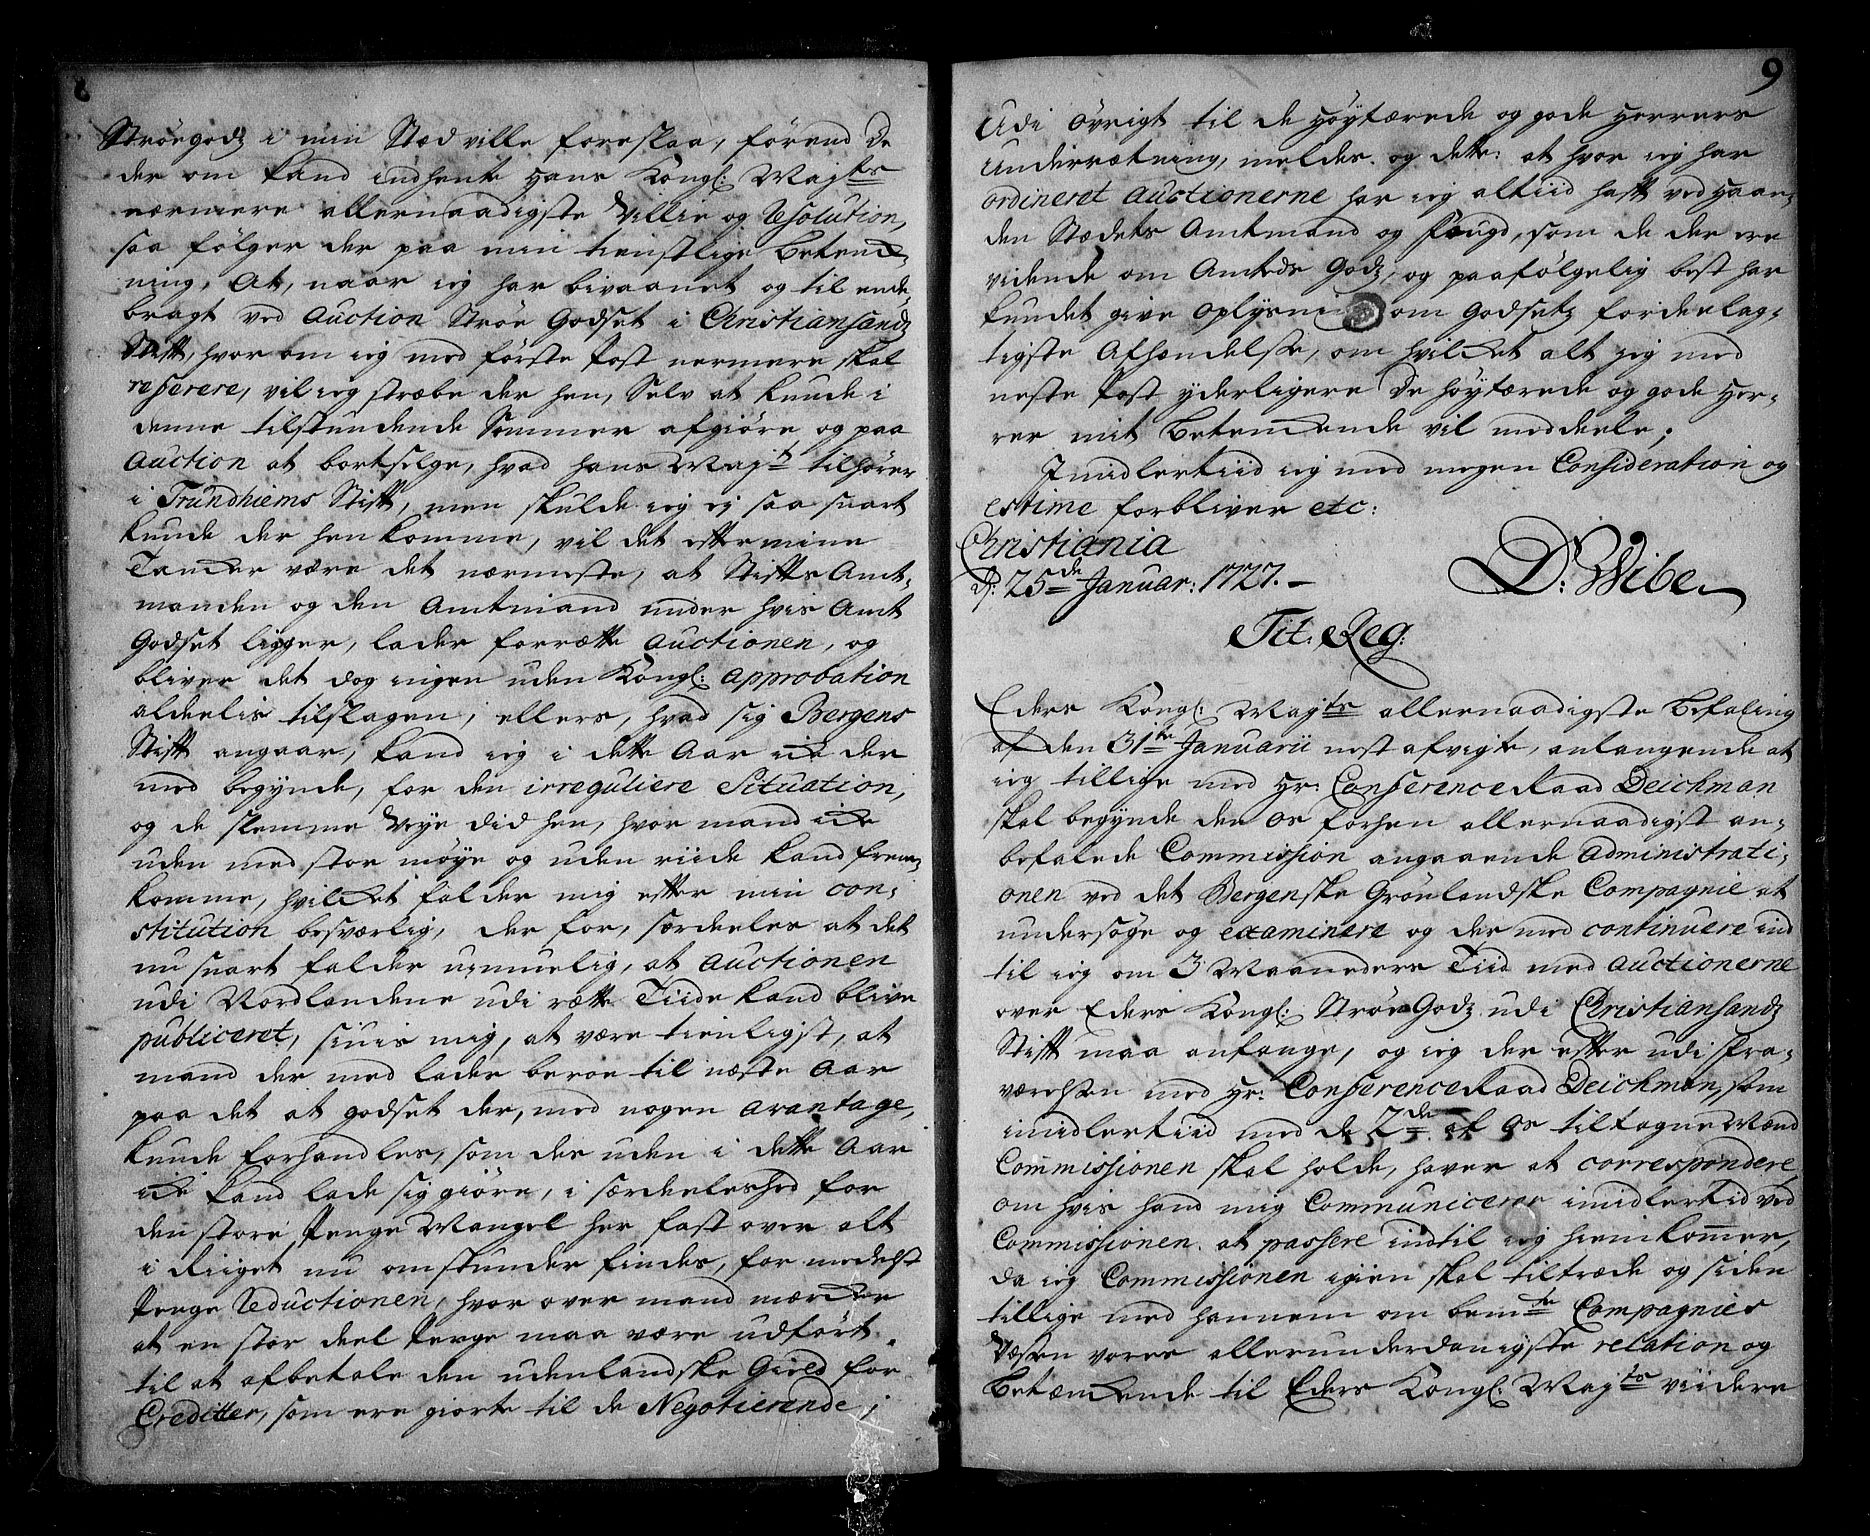 8
Strögodz i min Stæd ville foreslaa, førend De
der om kand indhente Hans Kongl: Maj:ts
nærmere allernaadigste Villie og Resolution,
saa følger der paa min tienstlige Betenk-
ning, At, naar ieg har bivaanet og til ende-
bragt ved Auction Strøe Godset i Christiansandz
Stift, hvor om ieg med første Post nermere skal
referere, vil ieg stræbe der hen, Selv at kunde i
denne tilstundende Sommer afgiøre og paa
Auction at bortselge, hvad hans Maj:t tilhører
i Trundhiems Stift, men skulde ieg ej saa snart
kunde der hen komme, vil det efter mine
Tancker være det nærmeste, at Stifts Amt-
manden og den Amtmand under hvis Amt
Godset ligger, lader forrætte Auctionen, og
bliver det dog ingen uden Kongl: Approbation
aldeelis tilslagen; ellers, hvad sig Bergens
Stift angaar, kand ieg i dette Aar icke der
med begynde, for den irreguliere Situation,
og de slemme Veye did hen, hvor mand icke
uden med stor møye og uden riide kand frem-
komme, hvilcket falder mig efter min con-
stitution besværlig, der for, særdeeles at det
nu snart falder uimuelig, at Auctionen
udi Nordlandene udi rætte Tiide kand blive
publiceret, siuis mig, at være tienligst, at
mand der med lader beroe til næste Aar
paa det at godset der, med nogen avantage,
kunde forhandles, som des uden i dette Aar
icke kand lade sig giøre, i særdeeleshed for
den store Penge Mangel her fast over alt
i Riiget nu omstunder findes, formedelst
Penge Reductionen, hvor over mand mærcker
at en stor deel Penge maa være udført
til at afbetale den udenlandske Gield for
Creditter, som ere giorte til de Negotierende;
9
Udi øvrigt til de Høytærede og gode Herrers
Underrætning, meldes og dette: at hvor ieg har
ordineret Auctionerne har ieg altiid haft ved Haan-
den Stædets Amtmand og Fougd, som de der ere
vidende om Amtets Godz, og paafølgelig best har
kundet give Oplysning om Godsetz fordeelag-
tigste Afhændelse, om hvilcket alt ieg med
neste Post yderligere De høytærede og gode Her-
rer mit Betenckende vil meddeele;
Imidlertiid ieg med megen Consideration og
estime forbliver etc:
Christiania
d: 25de Januar: 1727.
D: Wibe
Tit: Reg:
Eders Kongl: Maj:ts allernaadigste Befaling
af den 31te Januarii nest afvigte, anlangende at
ieg tillige med Hr: Conference Raad Deichman
skal begynde den os forhen allernaadigst an-
befalede Commission angaaende Administrati-
onen ved det Bergenske Grönlandske Compagnie at
undersøge og examinere og der med continuere ind
til ieg om 3 Maaneders Tiid med Auctionerne
over Eders Kongl: Strøe Godz udi Christiansandz
Stift maa anfange, og ieg der efter udi fra-
værelsen med Hr: Conference Raad Deichman, som
imidlertiid med de 2de af os tiltagne Mænd
Commissionen skal holde, haver at correspondere,
om hvis hand mig Communicerer imidlertid ved
Commissionen at passere indtil ieg hiemkommer,
da ieg Commissionen igien skal tiltræde og siden
tillige med hannem om bemte Compagnies
Væsen vores allerunderdanigste relation og
Betænckende til Eders Kongl: Maj:ts viidere